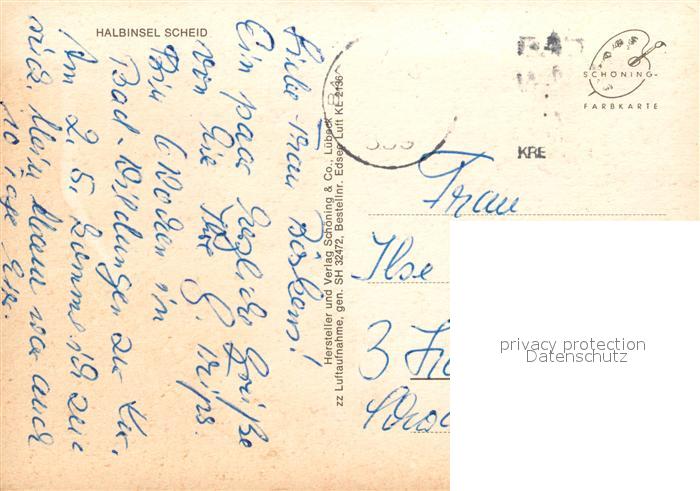 HALBINSEL SCHEID
Liebe Frau
Ein paar herzliche Grüße
von Ihrer G. Trips.
Bin 6 Wochen in
Bad-Wildungen zur Kur.
Am 2.5. komme ich zu-
rück. Mein Mann war auch
10 Tage hier.
Hersteller und Verlag Schöning & Co., Lübeck
zz Luftaufnahme, gen. SH 32472, Bestellnr. Edsee Luft KL 2136
BAD
KRE
SCHÖNING-
FARBKARTE
Frau
Ilse
3
privacy protection
Datenschutz